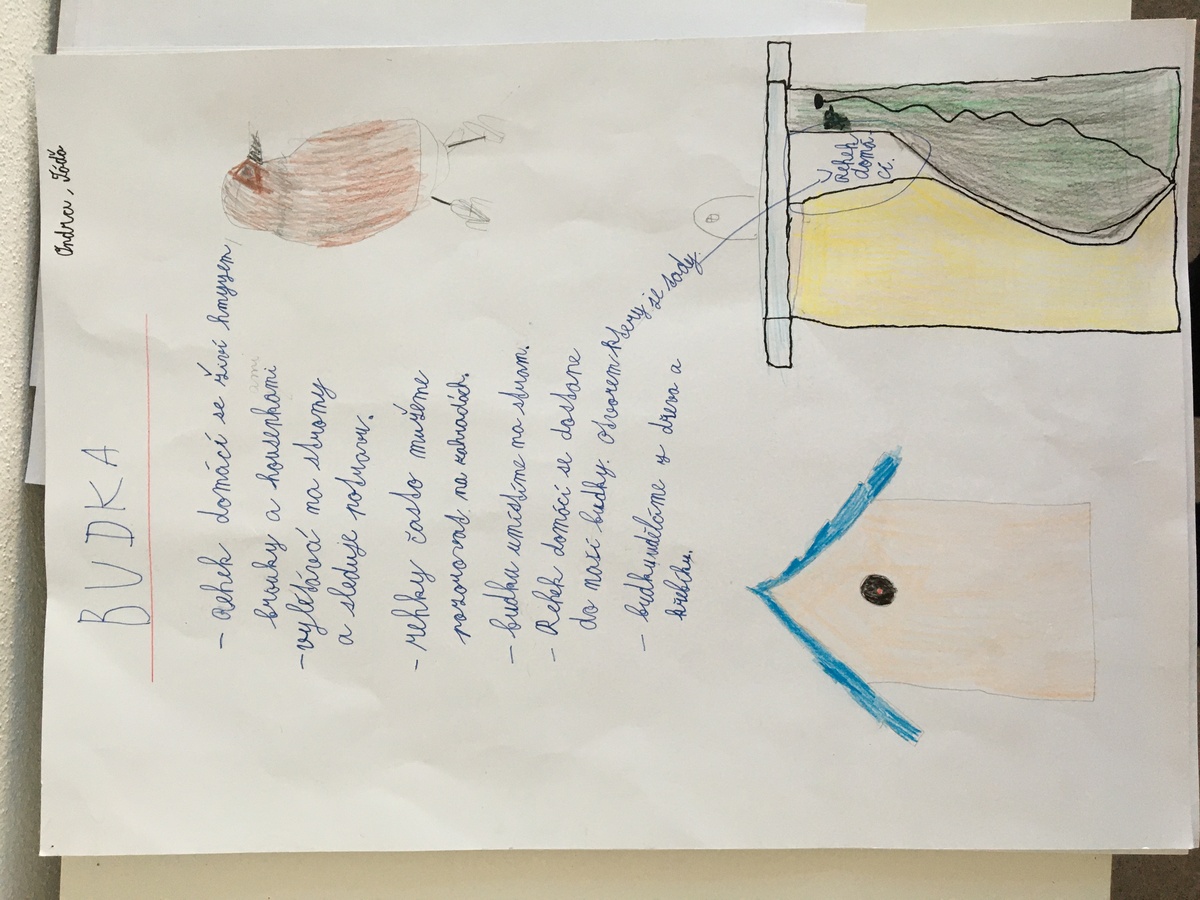 Ondra, Váďa
BUDKA
- Rehek domácí se živí hmyzem,
brouky a housenkami
- vylétává na stromy
a sleduje potravu.
- rehky často mužeme
pozorovat na zahradách.
- budka umístíme na strom.
- Rehek domácí se dostane
do naší budky. otvorem který je ze zadu
- budky uděláme z dřeva a
Rehek
domá
cí.